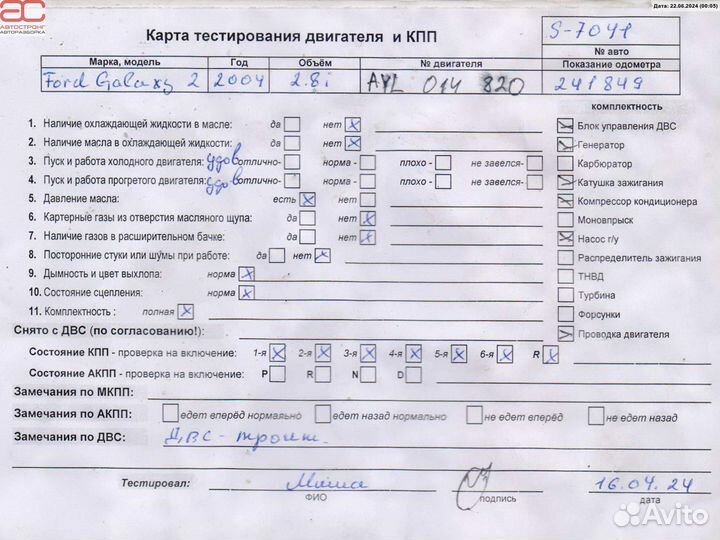 Дата: 22.06.2024 (00:05)
АС
АВТОСТРОНГ
АВТОРАЗБОРКА
Карта тестирования двигателя и КПП
S-7041
№ авто
Марка, модель Год Объём № двигателя Показание одометра
Ford Galaxy 2 2004 2.8i AYL 014 820 241849
комплектность
1. Наличие охлаждающей жидкости в масле: да нет X Блок управления ДВС
2. Наличие масла в охлаждающей жидкости: да нет X Генератор
3. Пуск и работа холодного двигателя: удов отлично- норма - плохо - не завелся- Карбюратор
4. Пуск и работа прогретого двигателя: удов отлично- норма- плохо - не завелся- Катушка зажигания
5. Давление масла: есть X нет Компрессор кондиционера
6. Картерные газы из отверстия масляного щупа: да нет X Моновпрыск
7. Наличие газов в расширительном бачке: да нет X Насос г/у
8. Посторонние стуки или шумы при работе: да нет X Распределитель зажигания
9. Дымность и цвет выхлопа: норма X ТНВД
10. Состояние сцепления: норма X Турбина
11. Комплектность : полная X Форсунки
Снято с ДВС (по согласованию!): Проводка двигателя
Состояние КПП - проверка на включение: 1-я X 2-я X 3-я X 4-я X 5-я X 6-я X R X
Состояние АКПП - проверка на включение: P R N D
Замечания по МКПП:
Замечания по АКПП: едет вперёд нормально едет назад нормально не едет вперёд не едет назад
Замечания по ДВС: ДВС - троит.
Тестировал: Миша 16.04.24
ФИО подпись дата
Avito